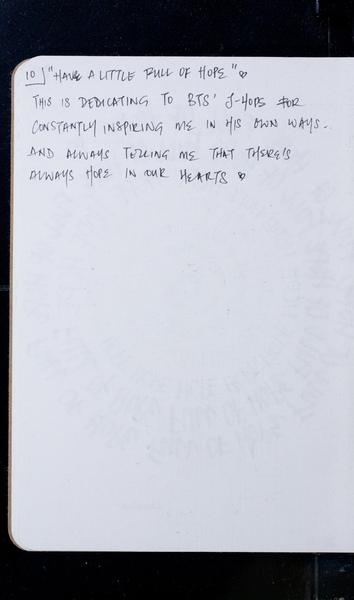 10 "HAVE A LITTLE FULL OF HOPE" ♡
THIS IS DEDICATING TO BTS' J-HOPE FOR
CONSTANTLY INSPIRING ME IN HIS OWN WAYS.
AND ALWAYS TELLING ME THAT THERE'S
ALWAYS HOPE IN OUR HEARTS ♡